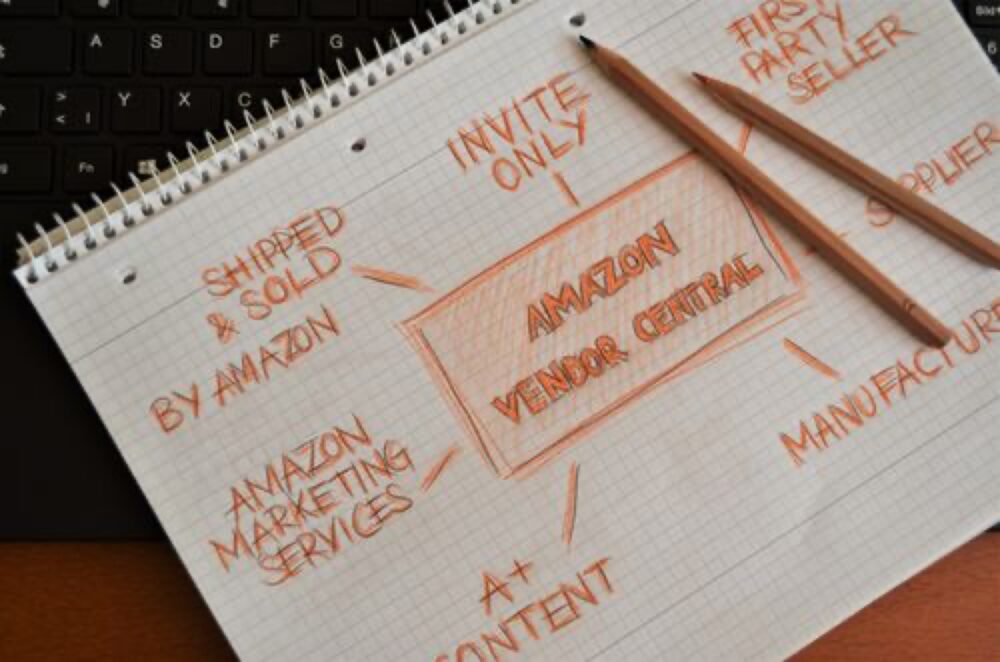 A S D F G
> < | Y X C
Fn
INVITE
ONLY
FIRST
PARTY
SELLER
SUPPLIER
SHIPPED
& SOLD
BY AMAZON
AMAZON
VENDOR CENTRAL
MANUFACTURE
AMAZON
MARKETING
SERVICES
A+
CONTENT